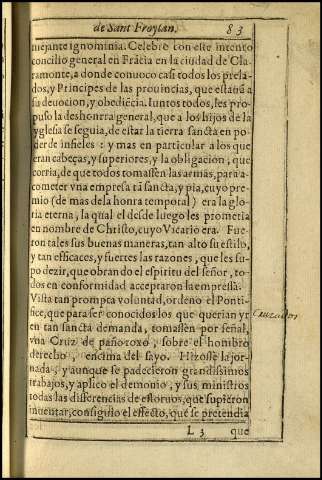 de Sant Froylan. 83
mejante ignominia. Celebrò con este intento
concilio general en Frãcia en la ciudad de Cla
ramonte, a donde conuoco casi todos los prela
dos, y Principes de las prouincias, que estauã a
su deuocion, y obediẽcia. Iuntos todos, les pro
puso la deshonrra general, que a los hijos de la
yglesia se seguia, de estar la tierra sancta en po
der de infieles: y mas en particular a los que
eran cabeças, y superiores, y la obligacion, que
corria, de que todos tomassẽn las armas, para a-
cometer vna empresa tã sancta, y pia, cuyo pre-
mio (de mas de la honra temporal) era la glo
ria eterna, la qual el desde luego les prometia
en nombre de Christo, cuyo Vicario era. Fue
ron tales sus buenas maneras, tan alto su estilo,
y tan efficaces, y fuertes las razones, que les su-
po dezir, que obrando el espiritu del señor, to-
dos en conformidad acceptaron la empressa.
Vista tan prompta voluntad, ordeno el Ponti-
fice, que para ser conocidos los que querian yr
en tan sancta demanda, tomassen por señal,
vna Cruz de paño roxo, sobre el hombro
derecho, encima del sayo. Hizose la jor-
nada, y aunque se padecieron grandissimos
trabajos, y aplico el demonio, y sus ministros
todas las differencias de estoruos, que supieron
inuentar, consiguio el effecto, que se pretendia
L 3 que
Cruzados